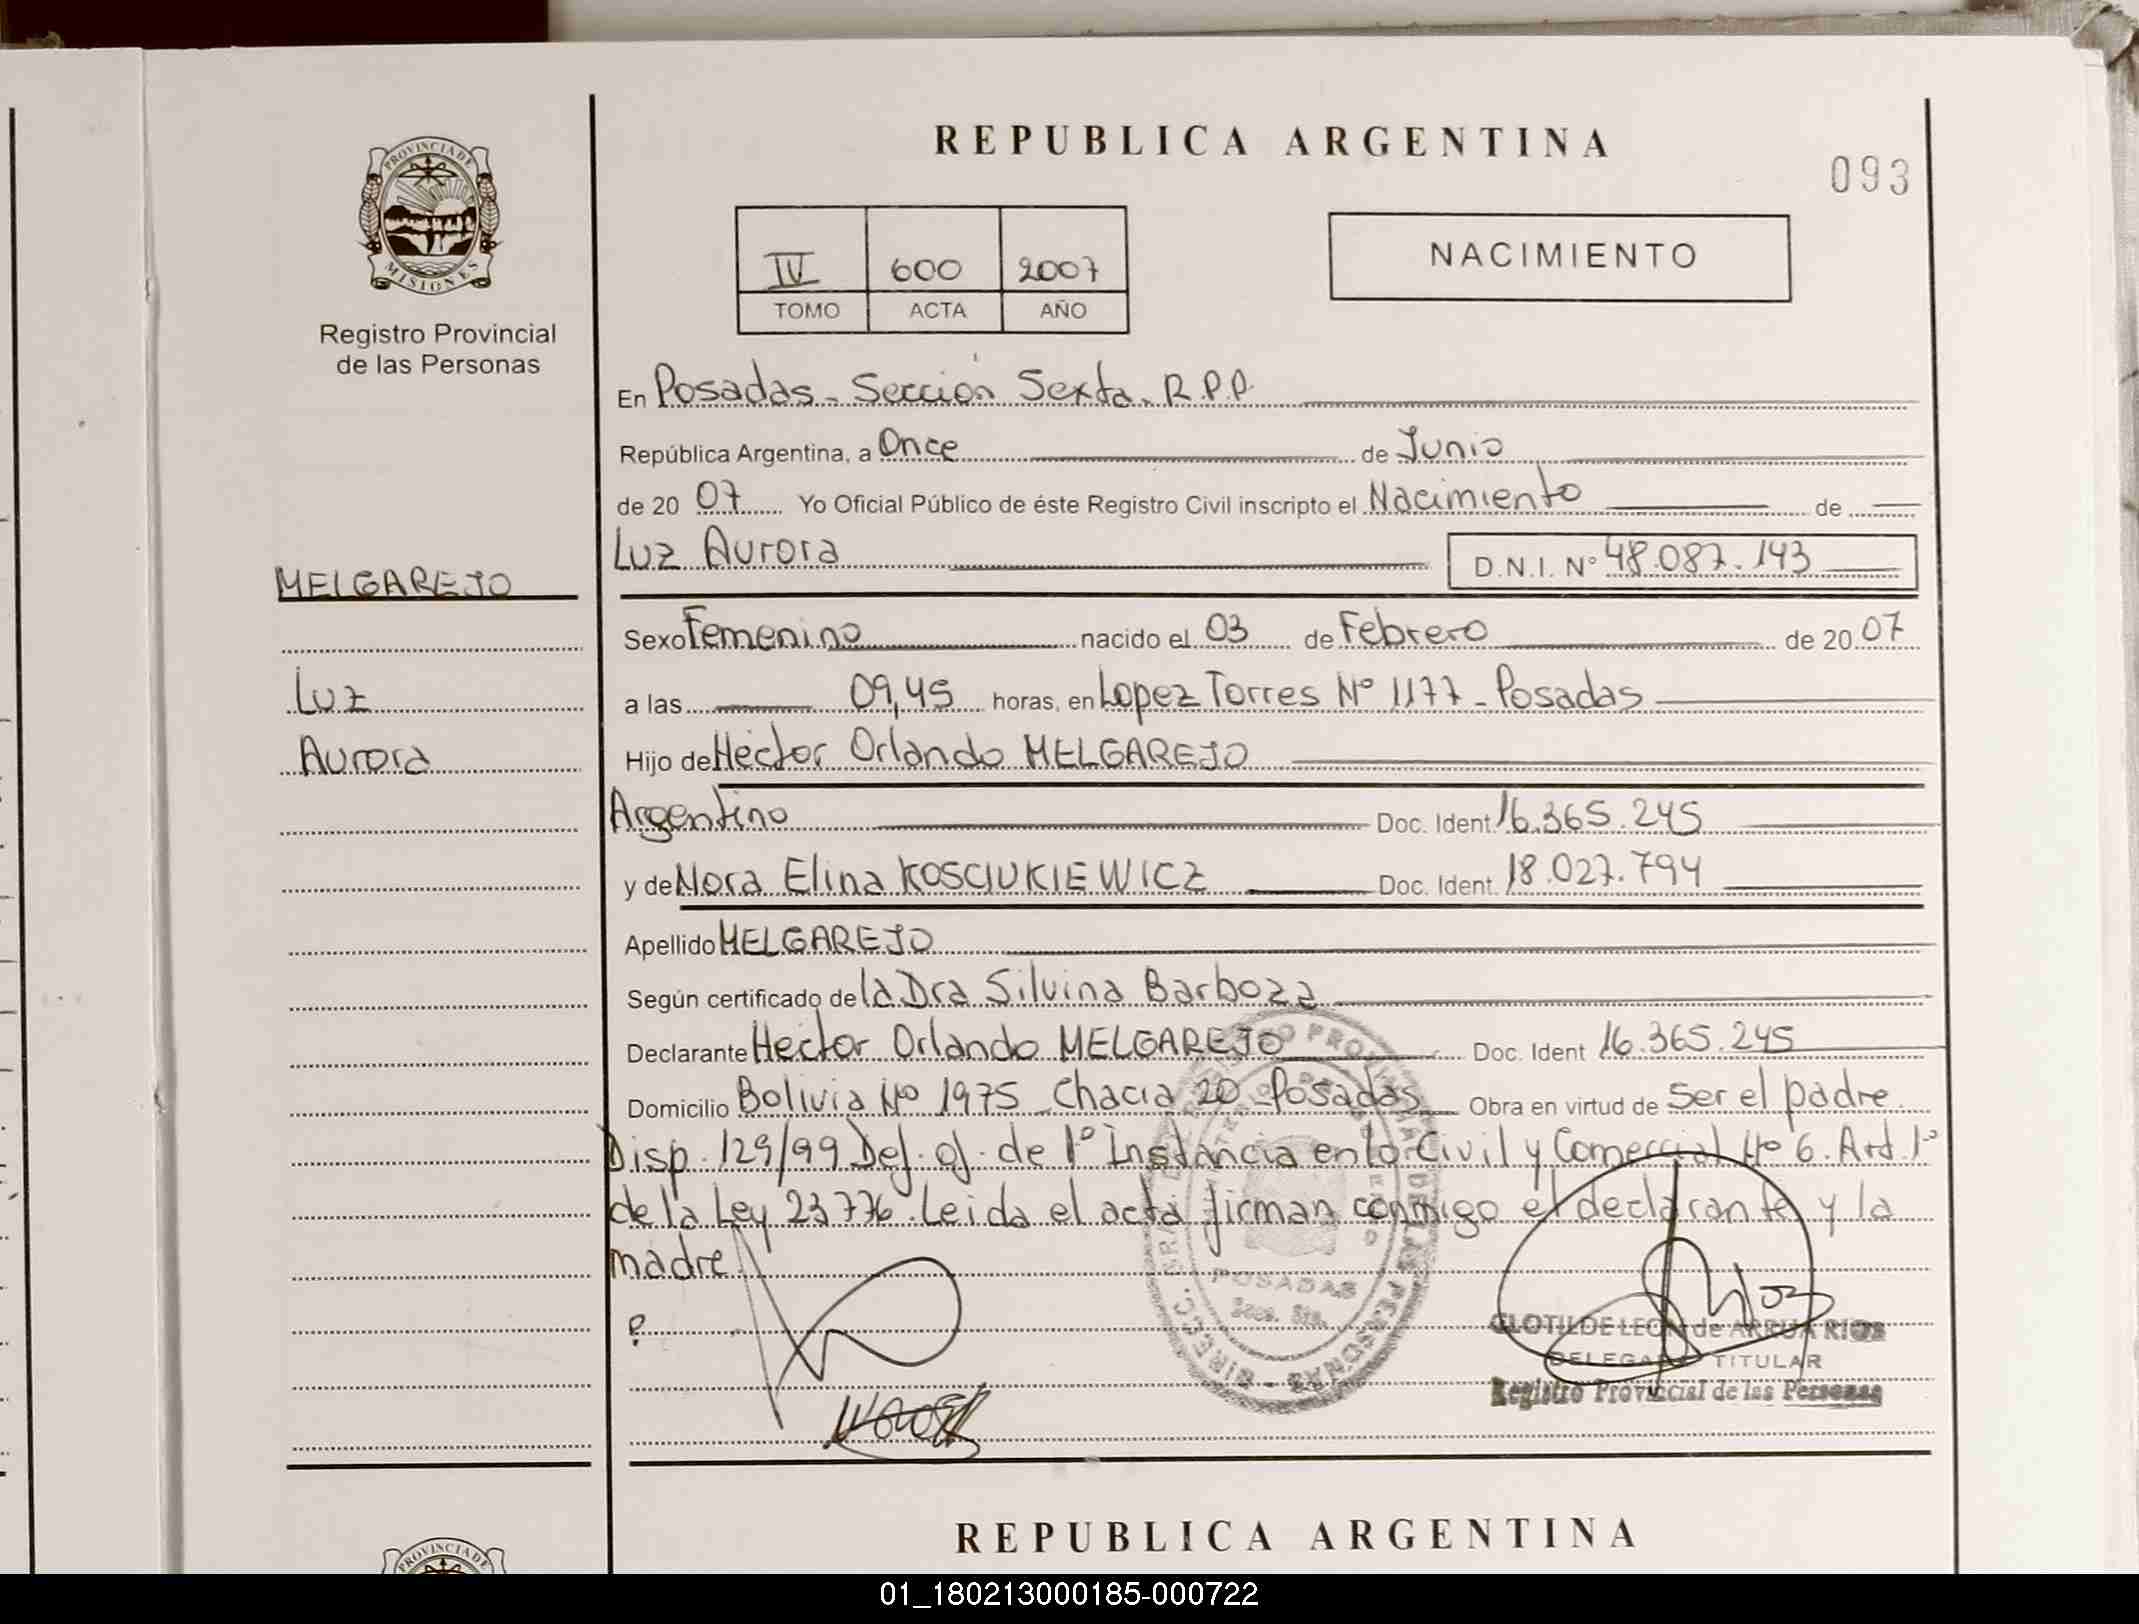 REPUBLICA ARGENTINA
093
PROVINCIA DE
MISIONES
Registro Provincial
de las Personas
IV 600 2007
TOMO ACTA AÑO
NACIMIENTO
En Posadas - Sección Sexta - R.P.P.
República Argentina, a Once de Junio
de 20 07 Yo Oficial Público de éste Registro Civil inscripto el Nacimiento de
Luz Aurora D.N.I. Nº 48.087.143
MELGAREJO
Luz
Aurora
Sexo Femenino nacido el 03 de Febrero de 20 07
a las 09,45 horas, en Lopez Torres Nº 1177 - Posadas
Hijo de Hector Orlando MELGAREJO
Argentino Doc. Ident. 16.365.245
y de Nora Elina KOSCIUKIEWICZ Doc. Ident. 18.027.794
Apellido MELGAREJO
Según certificado de la Dra Silvina Barboza
Declarante Hector Orlando MELGAREJO Doc. Ident 16.365.245
Domicilio Bolivia Nº 1975 - Chacra 20 - Posadas Obra en virtud de ser el padre
Disp. 129/99 Def. of. de 1º Instancia en lo Civil y Comercial Nº 6. Art 1º
de la Ley 23776. Leida el acta firman conmigo el declarante y la
madre
POSADAS
CLOTILDE LEON de ARRUA RIOS
DELEGADO TITULAR
Registro Provincial de las Personas
REPUBLICA ARGENTINA
PROVINCIA DE
01_180213000185-000722